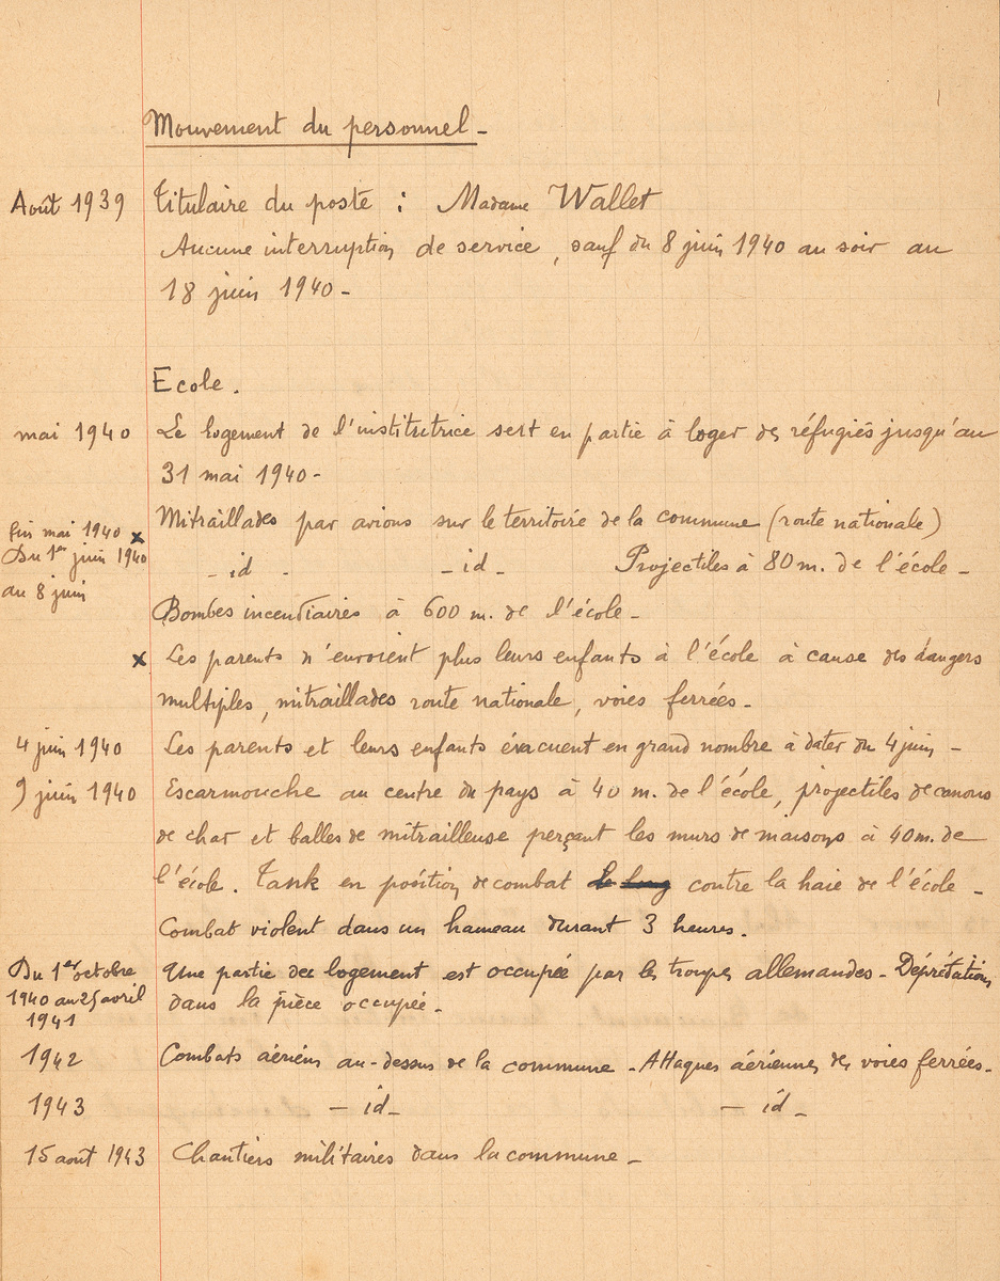 Mouvement du personnel -
Août 1939 Titulaire du poste : Madame Wallet
Aucune interruption de service, sauf du 8 juin 1940 au soir au
18 juin 1940 -
Ecole.
mai 1940 Le logement de l'institutrice sert en partie à loger des réfugiés jusqu'au
31 mai 1940 -
fin mai 1940 x Mitraillades par avions sur le territoire de la commune (route nationale)
Du 1er juin 1940 - id - - id - Projectiles à 80 m. de l'école -
au 8 juin Bombes incendiaires à 600 m. de l'école -
x Les parents n'envoient plus leurs enfants à l'école à cause des dangers
multiples, mitraillades route nationale, voies ferrées -
4 juin 1940 Les parents et leurs enfants évacuent en grand nombre à dater du 4 juin -
9 juin 1940 Escarmouche au centre du pays à 40 m. de l'école, projectiles de canons
de char et balles de mitrailleuse perçant les murs de maisons à 40 m. de
l'école. Tank en position de combat le long contre la haie de l'école -
Combat violent dans un hameau durant 3 heures.
Du 1er octobre Une partie du logement est occupée par les troupes allemandes - Déprédations
1940 au 25 avril dans la pièce occupée -
1941
1942 Combats aériens au-dessus de la commune - Attaques aériennes des voies ferrées -
1943 - id - - id -
15 août 1943 Chantiers militaires dans la commune -